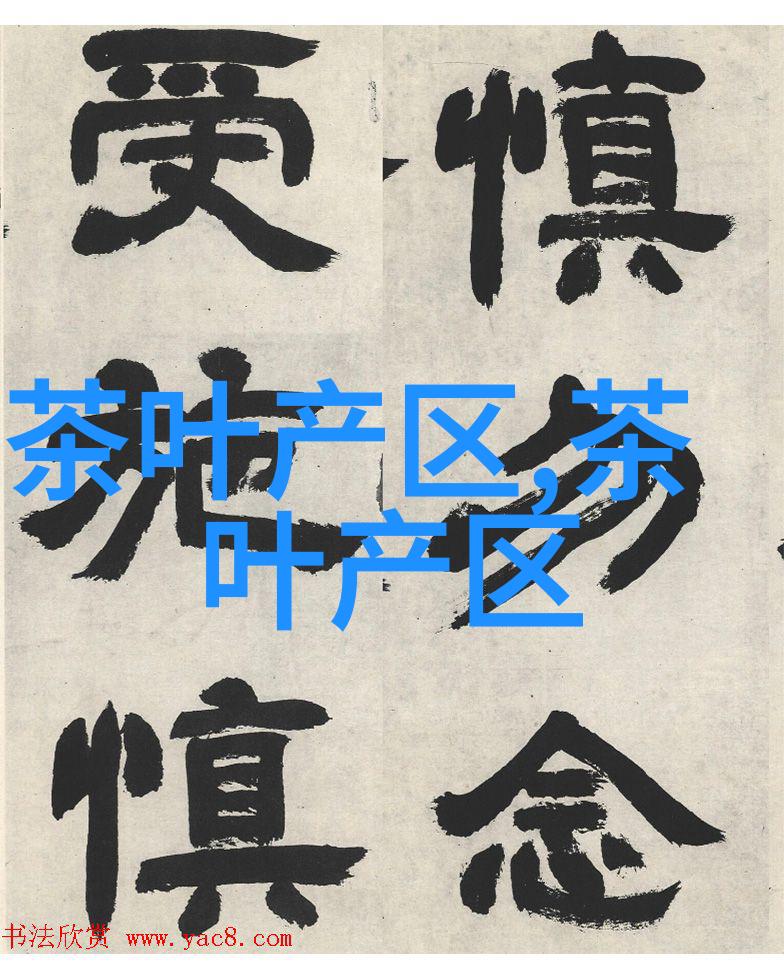 慎勿念
受施慎
茶叶产区,茶
叶产区
书法欣赏 www.yac8.com